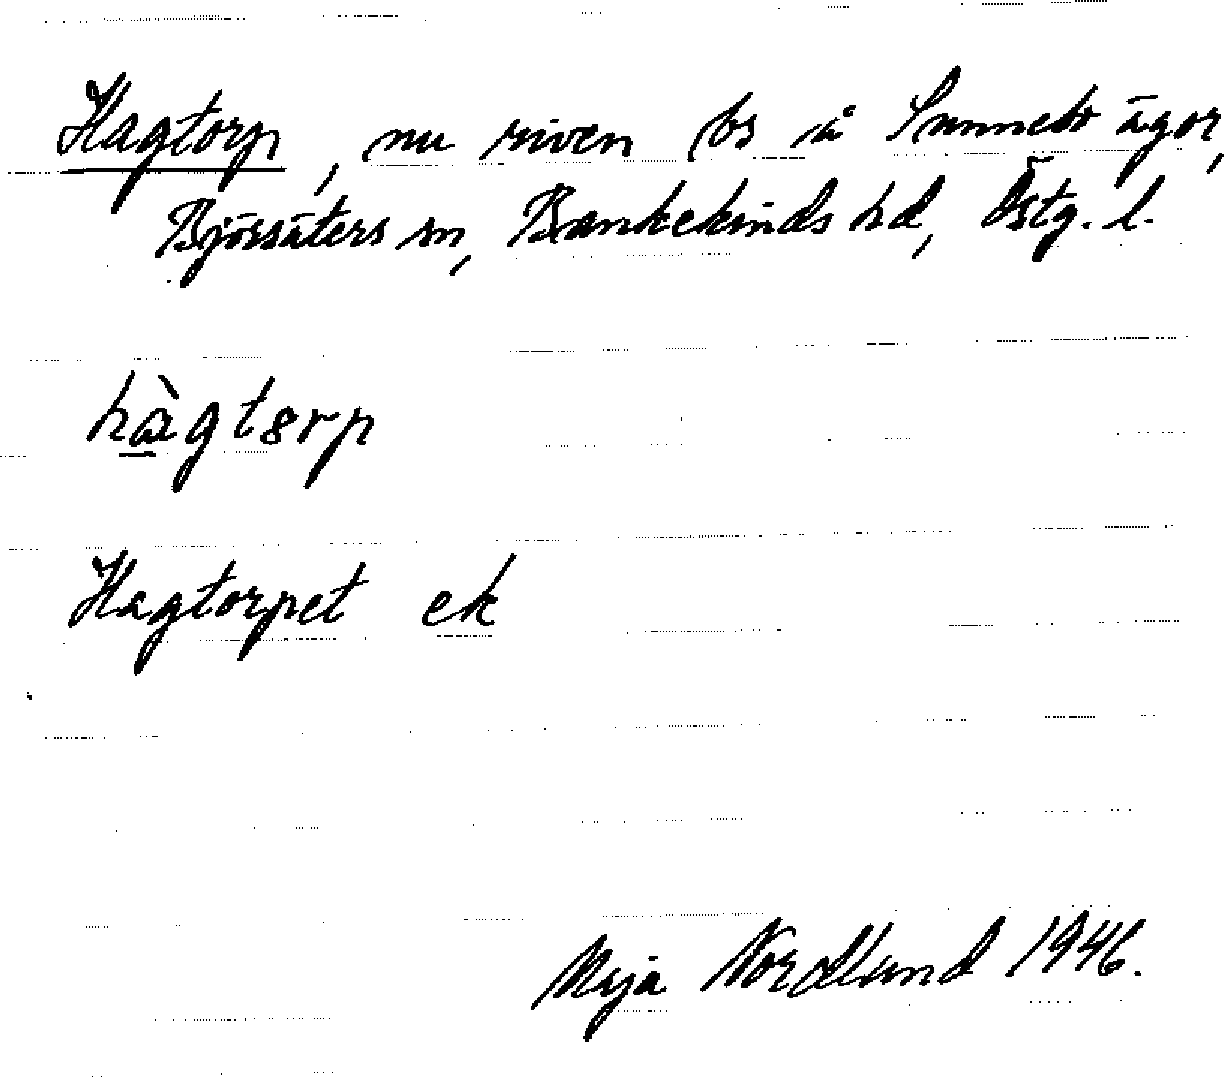 Hagtorp, nu riven bs å Sunnebo ägor,
Björsäters sn, Bankekinds hd, Östg. l.
hàgtorp
Hagtorpet ek
Maja Nordlund 1946.